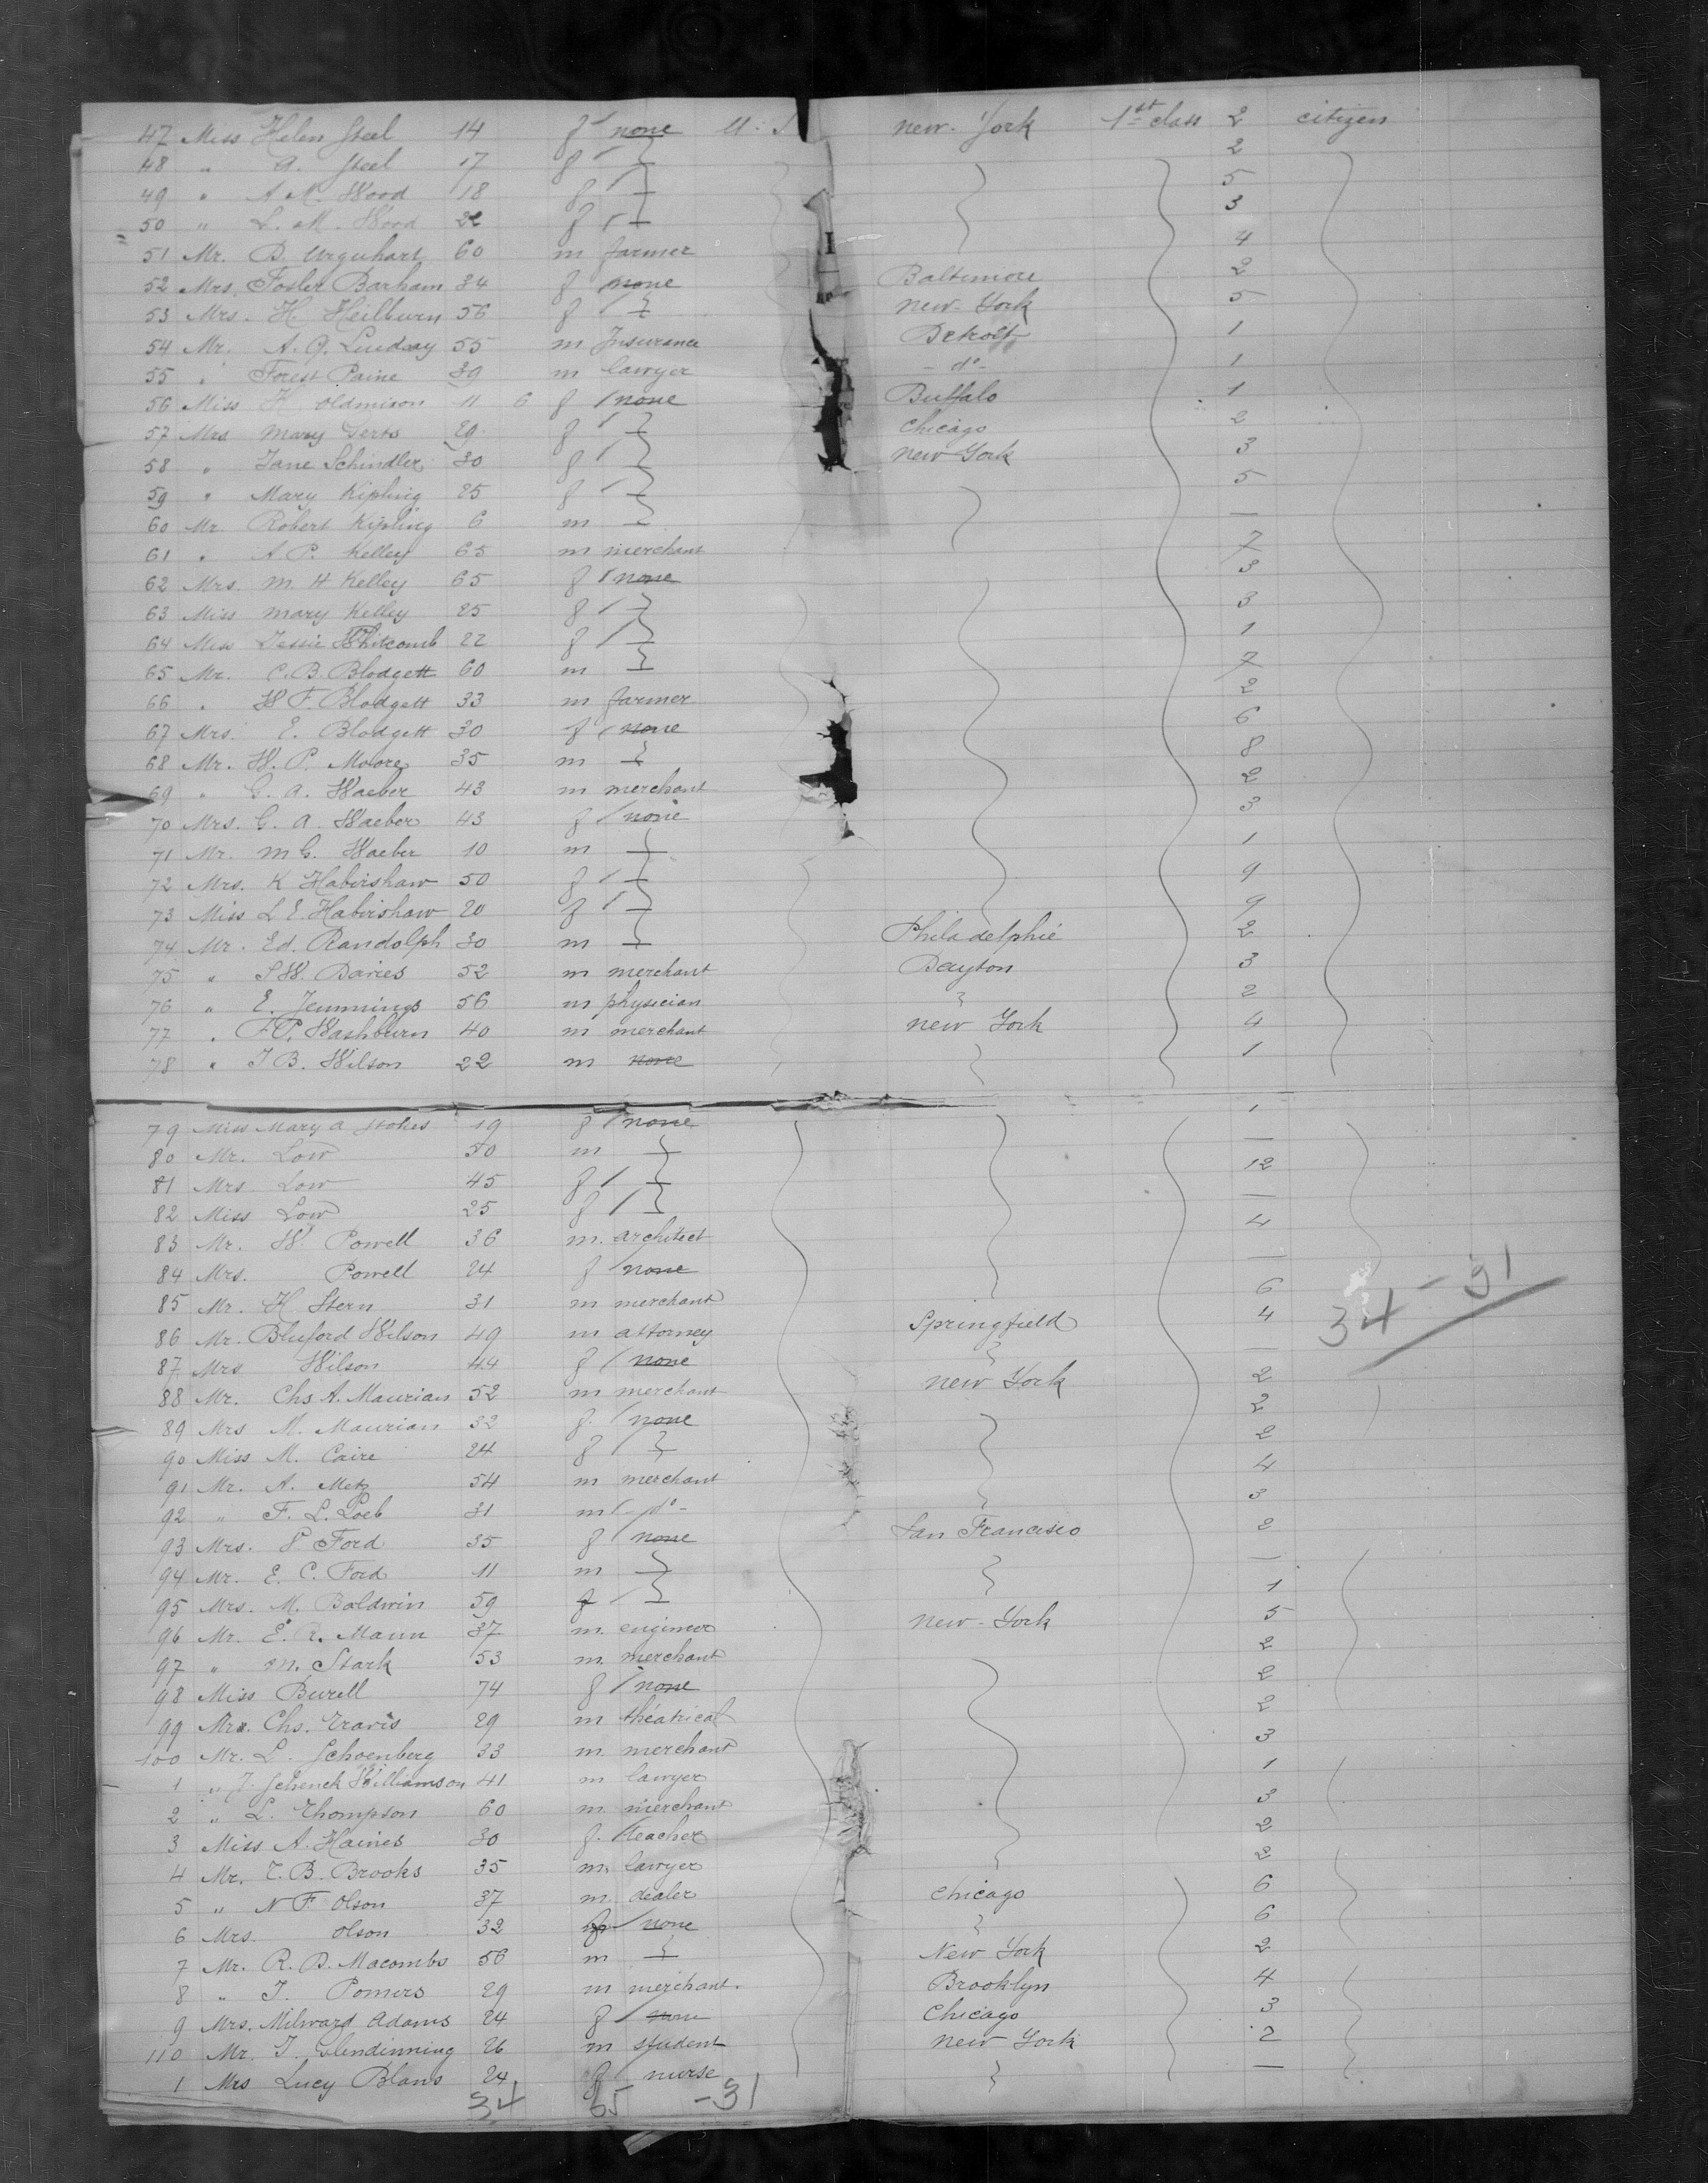 47 Miss Helen Steel 14 f none U. S New-York 1st class 2 citizen
48 " A. Steel 17 f 2
49 " A M. Wood 18 f 5
50 " L. M. Wood 22 f 3
51 Mr. B. Urquhart 60 m farmer 4
52 Mrs. Foster Barham 34 f none Baltimore 2
53 Mrs. H. Heilburn 56 f New-York 5
54 Mr. A. G. Lindsay 55 m Insurance Detroit 1
55 " Forest Paine 39 m lawyer - do - 1
56 Miss H. Oldmison 11 6 f none Buffalo 1
57 Mrs Mary Gerts 29 f Chicago 2
58 " Jane Schindler 30 f New York 3
59 " Mary Kipling 25 f 5
60 Mr. Robert Kipling 6 m —
61 " A. P. Kelley 65 m merchant 7
62 Mrs. M. H Kelley 65 f none 3
63 Miss Mary Kelley 25 f 3
64 Miss Jessie Whitcomb 22 f 1
65 Mr. C. B. Blodgett 60 m 7
66 " W F. Blodgett 33 m farmer 2
67 Mrs. E. Blodgett 30 f none 6
68 Mr. W. P. Moore 35 m 8
69 " G. A. Waeber 43 m merchant 2
70 Mrs. G. A. Waeber 43 f none 3
71 Mr. M G. Waeber 10 m 1
72 Mrs. K Habirshaw 50 f 9
73 Miss L E Habirshaw 20 f 9
74 Mr. Ed. Randolph 30 m Philadelphie 2
75 " S W. Davies 52 m merchant Dayton 3
76 " E. Jennings 56 m physician 2
77 " F. P. Washburn 40 m merchant New York 4
78 " J B. Wilson 22 m none 1
79 Miss Mary A Stokes 19 f none 1
80 Mr. Low 50 m —
81 Mrs Low 45 f 12
82 Miss Low 25 f —
83 Mr. W. Powell 36 m. architect 4
84 Mrs. Powell 24 f none —
85 Mr. H. Stern 31 m merchant 6
86 Mr. Bluford Wilson 49 m attorney Springfield 4
87 Mrs Wilson 44 f none —
88 Mr. Chs A. Maurian 52 m merchant New York 2
89 Mrs M. Maurian 32 f. none 2
90 Miss M. Caire 24 f 2
91 Mr. A. Metz 54 m merchant 4
92 " F. L. Loeb 31 m - do - 3
93 Mrs. P. Ford 35 f none San Francisco 2
94 Mr. E. C. Ford 11 m —
95 Mrs. M. Baldwin 59 f 1
96 Mr. E. R. Mann 37 m. engineer New-York 5
97 " M. Stark 53 m. merchant 2
98 Miss Burell 74 f none 2
99 Mr. Chs. Travis 29 m théatrical 2
100 Mr. L. Schoenberg 33 m. merchant 3
1 " J. Schenck Williamson 41 m lawyer 1
2 " L. Thompson 60 m. merchant 3
3 Miss A. Haines 30 f. teacher 2
4 Mr. T. B. Brooks 35 m. lawyer 2
5 " N F. Olson 37 m. dealer Chicago 6
6 Mrs. Olson 32 f none 6
7 Mr. R. D. Macombs 56 m New York 2
8 " J. Pomers 29 m merchant. Brooklyn 4
9 Mrs. Milward Adams 24 f none Chicago 3
110 Mr. J. Glendinning 26 m student New York 2
1 Mrs Lucy Blans 24 f nurse —
34 - 31
34 65 -31